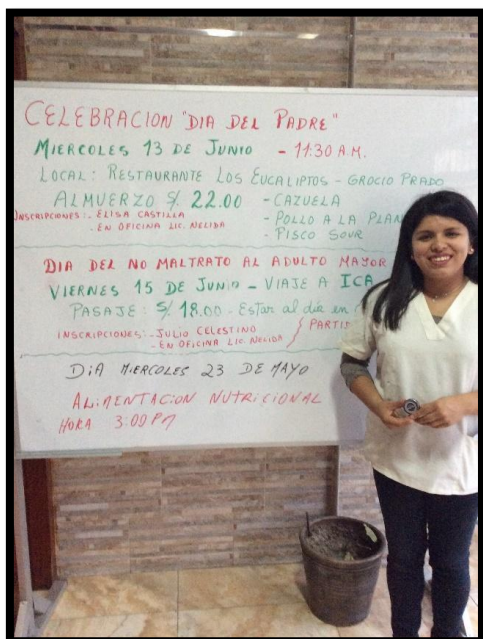 CELEBRACION "DIA DEL PADRE"
MIERCOLES 13 DE JUNIO - 11:30 A.M.
LOCAL: RESTAURANTE LOS EUCALIPTOS - GROCIO PRADO
ALMUERZO S/. 22.00 - CAZUELA
- POLLO A LA
- PISCO SOUR
INSCRIPCIONES: - ELISA CASTILLA
- EN OFICINA LIC. NELIDA
DIA DEL NO MALTRATO AL ADULTO MAYOR
VIERNES 15 DE JUNIO - VIAJE A ICA
PASAJE: S/ 18.00 - Estar al día en
INSCRIPCIONES: - JULIO CELESTINO
- EN OFICINA LIC NELIDA
DIA MIERCOLES 23 DE MAYO
ALIMENTACION NUTRICIONAL
HORA 3:00 PM